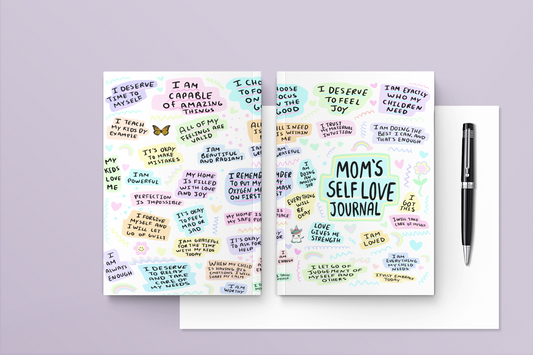 I DESERVE
TIME TO
MYSELF
I AM
CAPABLE
OF AMAZING
THINGS
I TEACH
MY KIDS BY
EXAMPLE
ALL OF MY
FEELINGS ARE
VALID
IT'S OKAY
TO MAKE
MISTAKES
I AM
BEAUTIFUL
AND RADIANT
MY
KIDS
LOVE
ME
I AM
POWERFUL
MY HOME
IS FILLED
WITH LOVE
AND JOY
I REMEMBER
TO PUT MY
OXYGEN
ON FIRST
PERFECTION
IS IMPOSSIBLE
I FORGIVE
MYSELF AND
I WILL LET
GO OF GUILT
IT'S OKAY
TO FEEL
MAD OR
SAD
MY HOME IS
I AM GRATEFUL
FOR THE TIME
WITH MY KIDS
TODAY
IT'S OKAY
TO ASK FOR
HELP
I
AM
ALWAYS
ENOUGH
I DESERVE
TO RELAX
AND TAKE
CARE OF
MY NEEDS
WHEN MY CHILD
I AM
WORTHY
I DESERVE
TO FEEL
JOY
I AM EXACTLY
WHO MY
CHILDREN
NEED
ALL I NEED
IS WITHIN
ME
I TRUST
MY MATERNAL
INTUITION
I AM DOING THE
BEST I CAN, AND
THAT'S ENOUGH
I
AM
DOING
AN
AMAZING
JOB
MOM'S
SELF LOVE
JOURNAL
EVERYTHING
WILL
BE
OKAY
I
GOT
THIS
LOVE
GIVES ME
STRENGTH
I AM
LOVED
I WILL TAKE
CARE OF MYSELF
I AM
EVERYTHING
MY CHILD
NEEDS
I LET GO OF
JUDGEMENT OF
MYSELF AND
OTHERS
I FULLY EMBRACE
TODAY